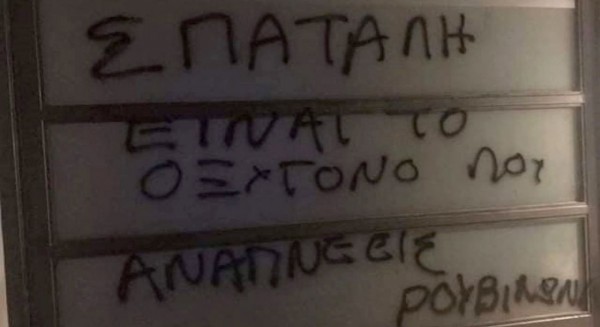 ΣΠΑΤΑΛΗ
ΕΙΝΑΙ ΤΟ
ΟΞΥΓΟΝΟ ΠΟΥ
ΑΝΑΠΝΕΕΙΣ
ΡΟΥΒΙΚΩΝΑ